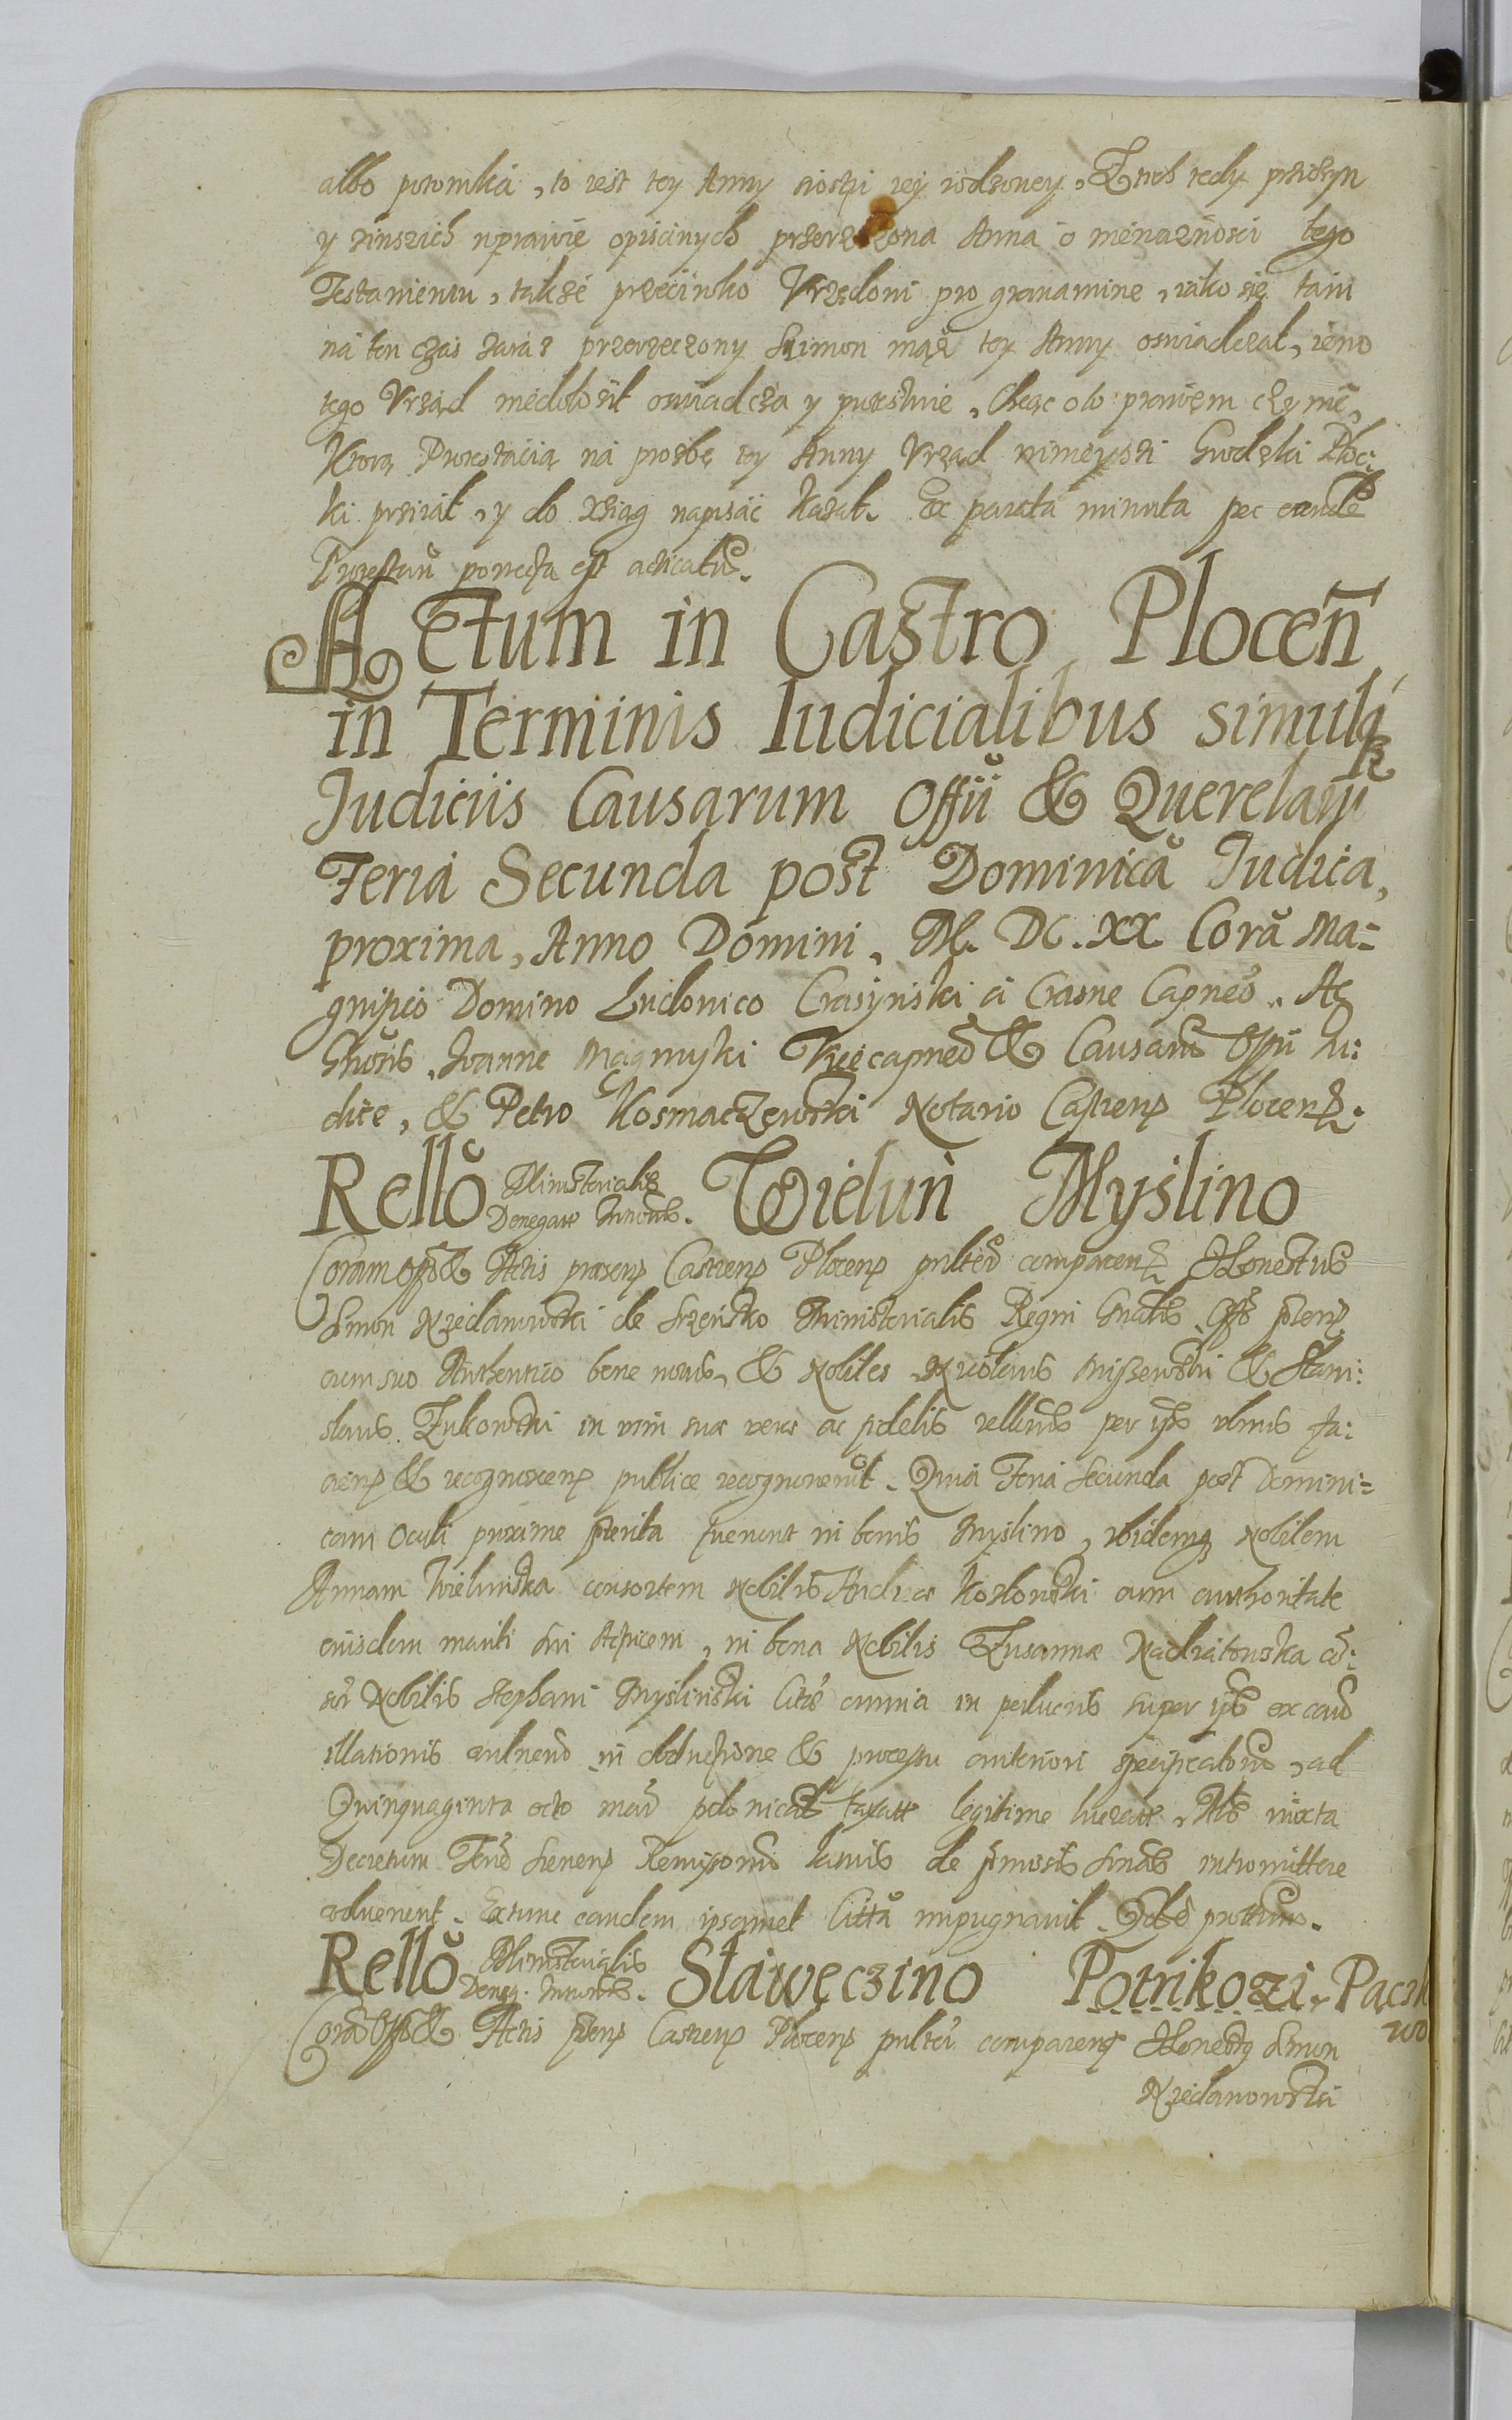 albo potomka, to iest tey Anny siostri iey rodzoney, Z tich tedy prziczyn
y zinszich wprawie opisanych przerzeczona Anna o niewaznosci tego
Testamentu, takze przeciwko Vrzędowi pro grauamine, iako się tam
na ten czas zaraz przerzeczony Szimon mąz tey Anny oswiadczal, ieno
tego Vrząd niedolozil oswiadcza y protestuie, Chcąc oto prawem czynic,
Ktorą Protestacią na prozbę tey Anny Vrząd ninieyszi Grodzki Ploc:
ki prziiąl, y do Xsiąg napisac kazal. Ex parata minuta per eande
Protestan porrecta est acticatu.
Actum in Castro Plocen
in Terminis Iudicialibus simulq
Judiciis Causarum Offii & Querelaru
Feria Secunda post Dominica Judica,
proxima, Anno Domini, M. DC. XX Cora Ma=
gnifico Domino Ludouico Crasynski a Crasne Capneo. Ac
Gnosis Joanne Vicecapneo & Causaru Offii Iu:
dice, & Petro Kosmaczewski Notario Castren Plocen.
Rello Ministerialis Denegatae Intromis. Wielun Myslino
Coram Offo & Actis praesen Castren Plocen psliter comparen Honestus
Simon Nzedanowski de Srzensko Ministerialis Regni Gnalis Offo psen
cum suo Authentico bene notus, & Nobiles Nicolaus Miszewski & Stani:
slaus Zukowski in vim suae verae ac fidelis rellonis per ipsos vlnus fa:
cien & recognoscen publice recognouerut. Quia Feria Secunda post Domini=
cam Oculi proxime pterita fuerunt in bonis Myslino, ibidemq Nobilem
Annam Wielunska consortem Nobilis Andreae Kozlowski cum authoritate
eiusdem mariti sui Actricem, in bona Nobilis Zusannae Nadratowska co:
sor Nobilis Stephani Myslinski Citae omnia in perlucris super ipsis ex causa
illationis vulneru in obductione & processu anteriori specificatoru, ad
Quinquaginta octo mar polonicales taxatae legitime lucratae, Als iuxta
Decretum Terre Srenen Remissoriu latius de pmissis sonas intromittere
voluerunt. Extunc eandem ipsamet Citta impugnauit. Qdo
Rello Ministerialis Deneg. Intromis. Slawęczino Potrikozi, Paczk
wo
Cora Offo & Actis psen Castren Plocen psliter comparen Honestq Simon
Nzedanowski